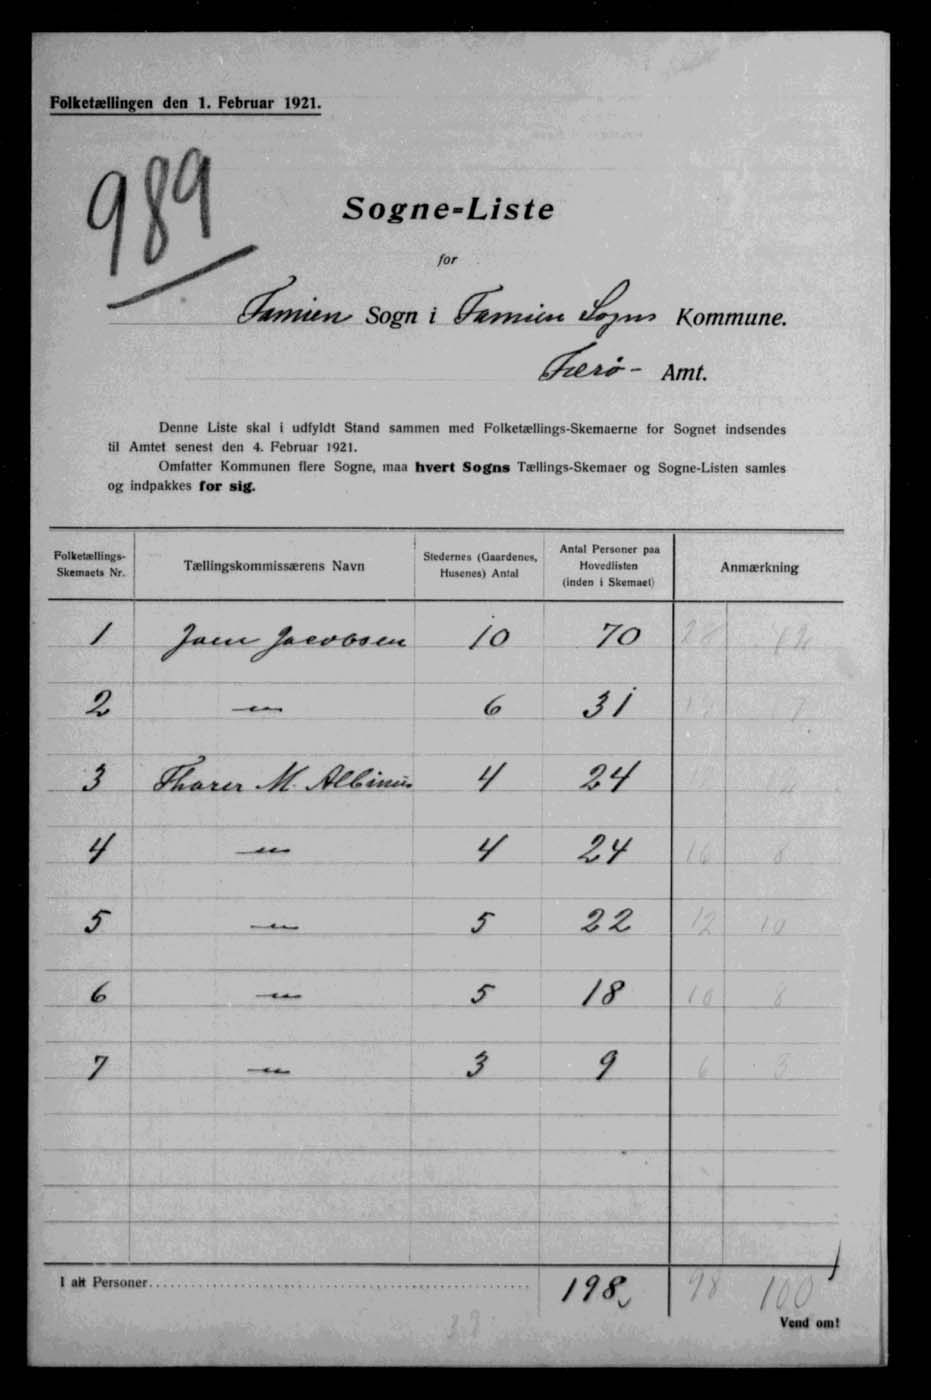 Folketællingen den 1. Februar 1921.
989
Sogne-Liste
for
Famien Sogn i Famien Sogns Kommune.
Færø- Amt.
Denne Liste skal i udfyldt Stand sammen med Folketællings-Skemaerne for Sognet indsendes
til Amtet senest den 4. Februar 1921.
Omfatter Kommunen flere Sogne, maa hvert Sogns Tællings-Skemaer og Sogne-Listen samles
og indpakkes for sig.
Folketællings-Skemaets Nr. Tællingskommissærens Navn Stedernes (Gaardenes, Husenes) Antal Antal Personer paa Hovedlisten (inden i Skemaet) Anmærkning
1 Joen Jacobsen 10 70
2 —"— 6 31
3 Thorer M. Albinus 4 24
4 —"— 4 24 16 8
5 —"— 5 22 12 10
6 —"— 5 18 10 8
7 —"— 3 9 6 3
I alt Personer 198 98 100
Vend om!